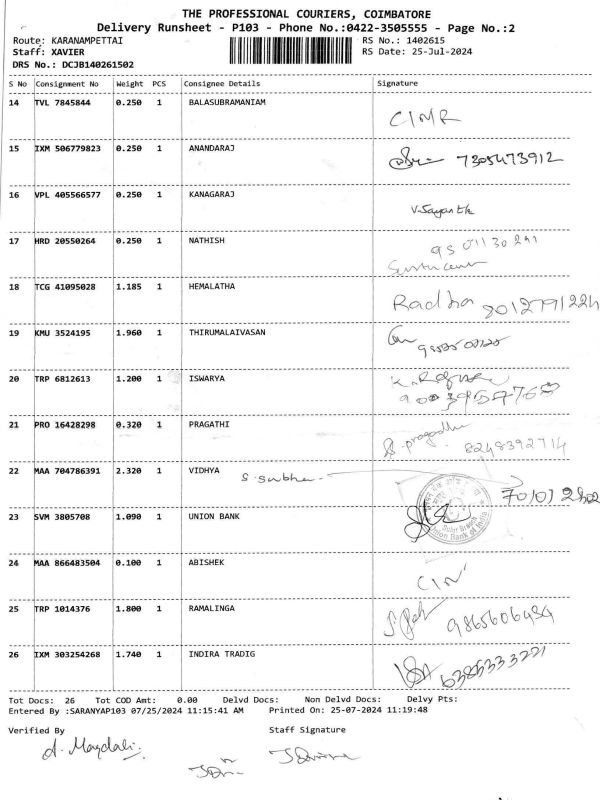 THE PROFESSIONAL COURIERS, COIMBATORE
Delivery Runsheet - P103 - Phone No.:0422-3505555 - Page No.:2
Route: KARANAMPETTAI RS No.: 1402615
Staff: XAVIER RS Date: 25-Jul-2024
DRS No.: DCJB140261502
S No Consignment No Weight PCS Consignee Details Signature
14 TVL 7845844 0.250 1 BALASUBRAMANIAM
15 IXM 506779823 0.250 1 ANANDARAJ 7305473912
16 VPL 405566577 0.250 1 KANAGARAJ
17 HRD 20550264 0.250 1 NATHISH
18 TCG 41095028 1.185 1 HEMALATHA Radha 8012791224
19 KMU 3524195 1.960 1 THIRUMALAIVASAN
20 TRP 6812613 1.200 1 ISWARYA
21 PRO 16428298 0.320 1 PRAGATHI 8248392714
22 MAA 704786391 2.320 1 VIDHYA
23 SVM 3805708 1.090 1 UNION BANK
Union Bank of India
24 MAA 866483504 0.100 1 ABISHEK
25 TRP 1014376 1.800 1 RAMALINGA
26 IXM 303254268 1.740 1 INDIRA TRADIG 6385333221
Tot Docs: 26 Tot COD Amt: 0.00 Delvd Docs: Non Delvd Docs: Delvy Pts:
Entered By :SARANYAP103 07/25/2024 11:15:41 AM Printed On: 25-07-2024 11:19:48
Verified By Staff Signature